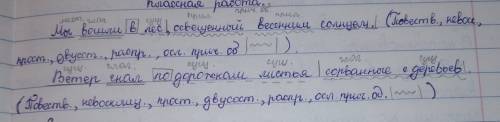 классная работа.
сущ. глаг. сущ. прич. прич. об прил. сущ.
Мы вошли в лес, освещённый весенним солнцем. (Повеств., невоск.,
прост., двусост., распр., осл. прич. об |~~~| ).
сущ. глаг. сущ. сущ. глаг. сущ.
Ветер гнал по дорожкам листья, сорванные с деревьев.
(Повеств., невосклиц., прост., двусост., распр., осл. прич. об. |~~~| )